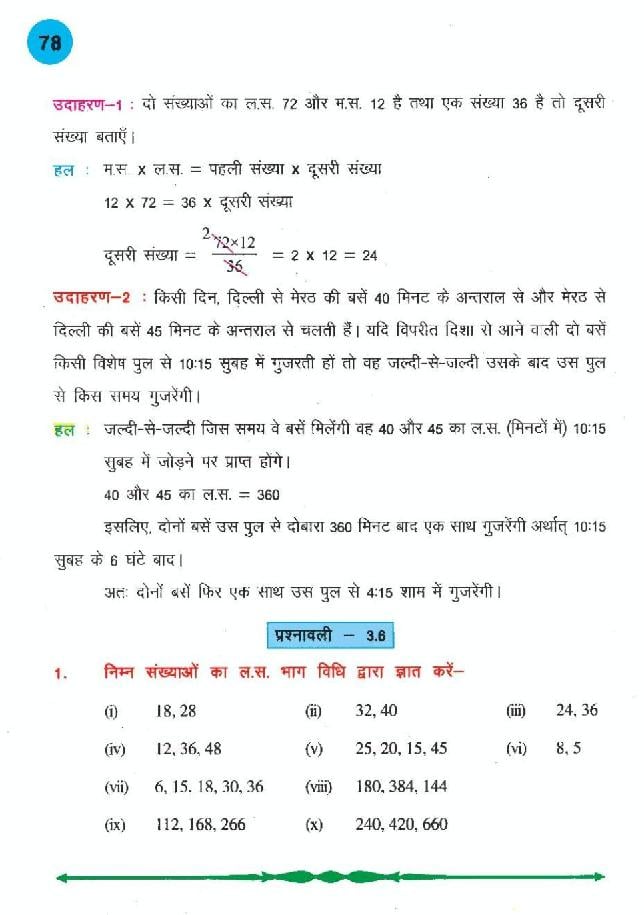 78
उदाहरण–1 : दो संख्याओं का ल.स. 72 और म.स. 12 है तथा एक संख्या 36 है तो दूसरी
संख्या बताएँ।
हल : म.स. x ल.स. = पहली संख्या x दूसरी संख्या
12 x 72 = 36 x दूसरी संख्या
दूसरी संख्या = 2 72×12 / 36 = 2 x 12 = 24
उदाहरण–2 : किसी दिन, दिल्ली से मेरठ की बसें 40 मिनट के अन्तराल से और मेरठ से
दिल्ली की बसें 45 मिनट के अन्तराल से चलती हैं। यदि विपरीत दिशा से आने वाली दो बसें
किसी विशेष पुल से 10:15 सुबह में गुजरती हों तो वह जल्दी-से-जल्दी उसके बाद उस पुल
से किस समय गुजरेंगी।
हल : जल्दी-से-जल्दी जिस समय वे बसें मिलेंगी वह 40 और 45 का ल.स. (मिनटों में) 10:15
सुबह में जोड़ने पर प्राप्त होंगे।
40 और 45 का ल.स. = 360
इसलिए, दोनों बसें उस पुल से दोबारा 360 मिनट बाद एक साथ गुजरेंगी अर्थात् 10:15
सुबह के 6 घंटे बाद।
अतः दोनों बसें फिर एक साथ उस पुल से 4:15 शाम में गुजरेंगी।
प्रश्नावली – 3.6
1. निम्न संख्याओं का ल.स. भाग विधि द्वारा ज्ञात करें–
(i) 18, 28 (ii) 32, 40 (iii) 24, 36
(iv) 12, 36, 48 (v) 25, 20, 15, 45 (vi) 8, 5
(vii) 6, 15. 18, 30, 36 (viii) 180, 384, 144
(ix) 112, 168, 266 (x) 240, 420, 660